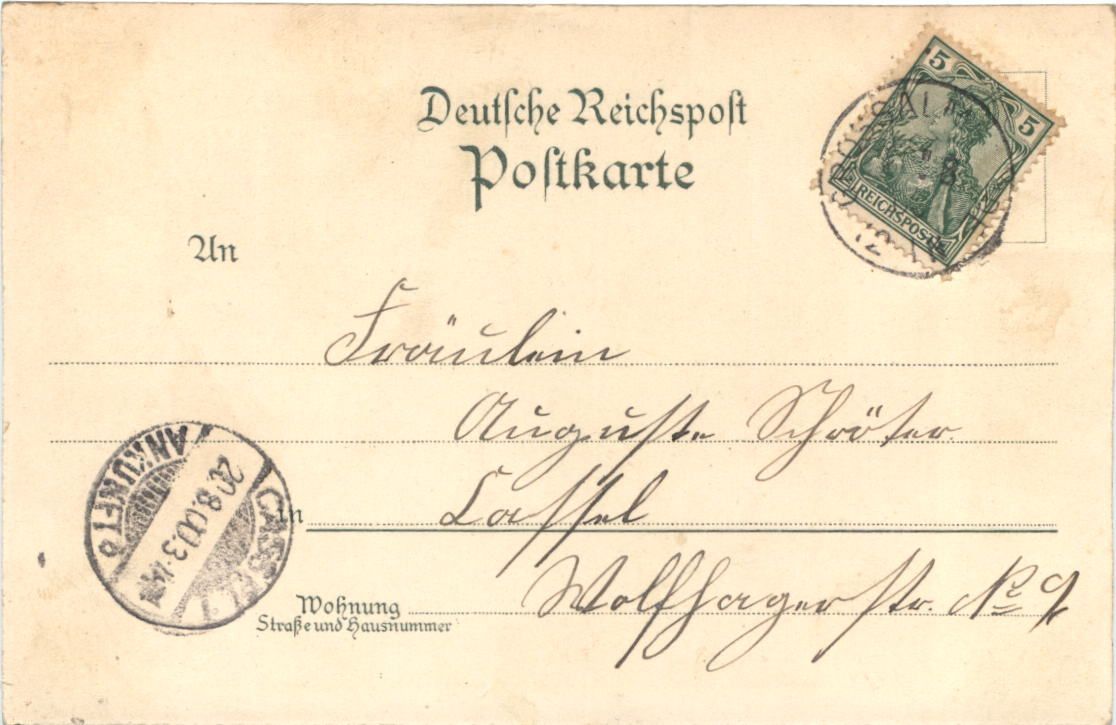 Deutsche Reichspost
Postkarte
5
5
REICHSPOST
An
Fräulein
Auguste Schröter.
in Cassel
Wohnung Wolfhagerstr. No 9
Straße und Hausnummer
CASSEL 1
20.8.00.3-4N
ANKUNFT